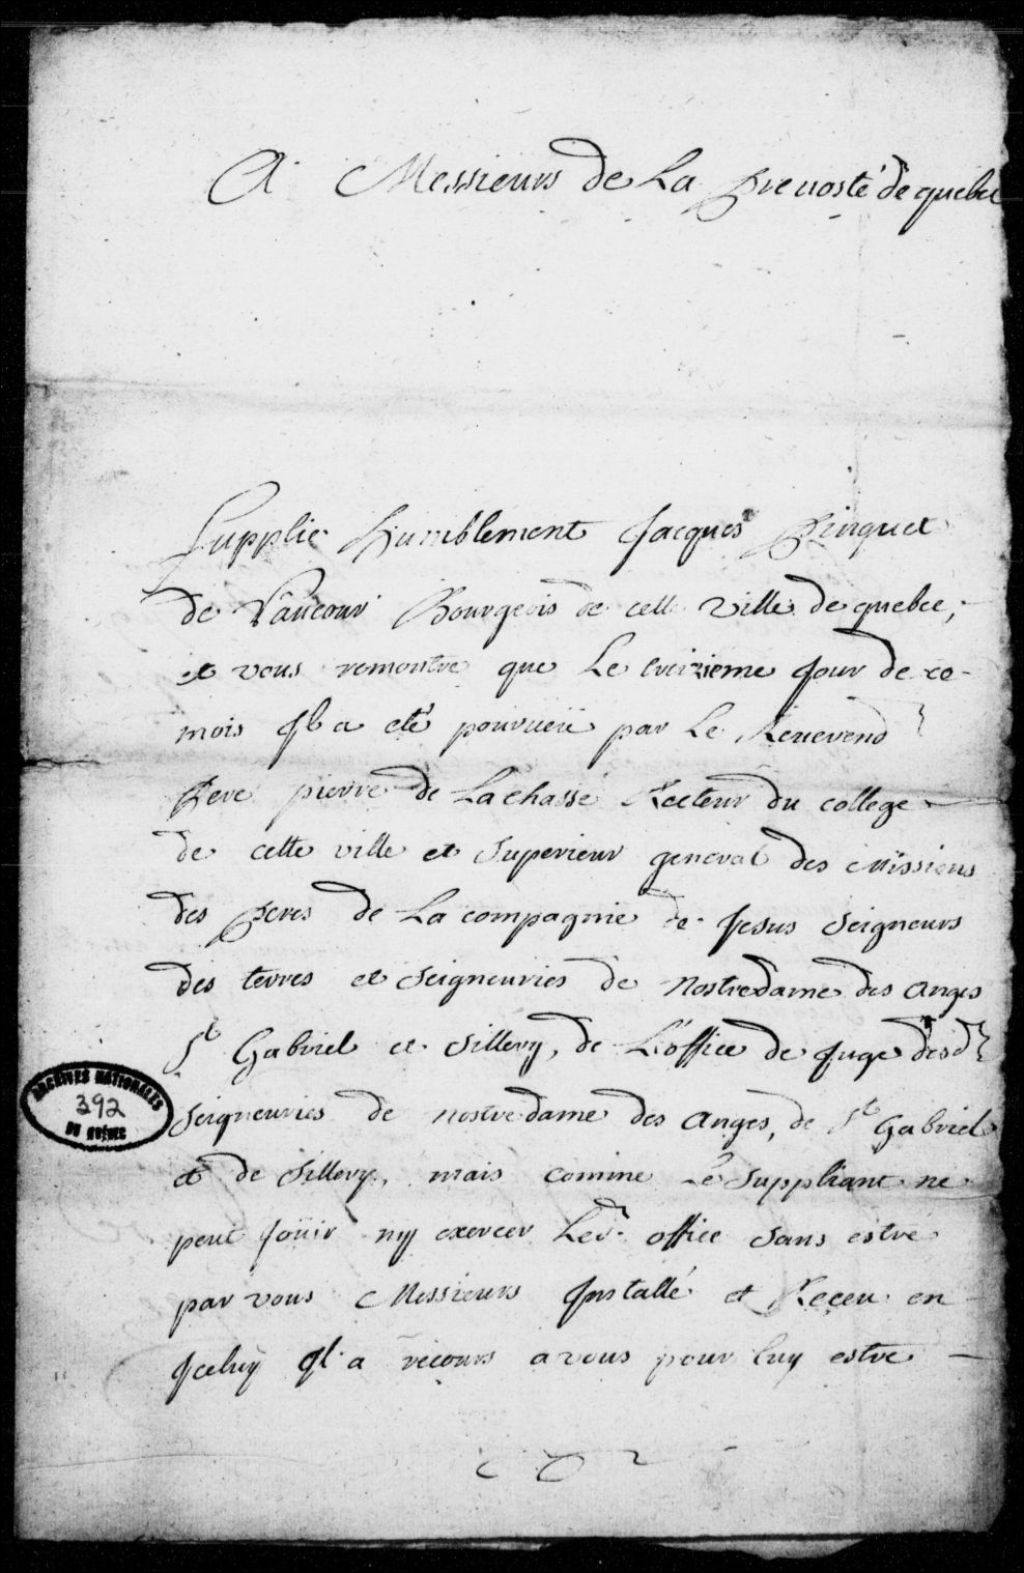 A Messieurs de La Prevosté de quebec
Supplie humblement Jacques Pinguet
de Vaucour Bourgeois de cette ville de quebec,
et vous remontre que Le treizieme Jour de ce
mois Jl a eté pourveü par Le Reverend
Pere pierre de Lachasse Recteur du college
de cette ville et Superieur general des Missions
des Peres de La compagnie de Jesus Seigneurs
des terres et Seigneuries de Nostredame des anges
St Gabriel et Sillery, de L'office de Juge desd
ARCHIVES NATIONALES
392
DU QUÉBEC
Seigneuries de nostre dame des anges, de St Gabriel
et de Sillery, mais comme Le Suppliant ne
peut Joüir ny exercer Led. office sans estre
par vous Messieurs Jnstallé et Receu en
Jceluy Jl a recours a vous pour luy estre